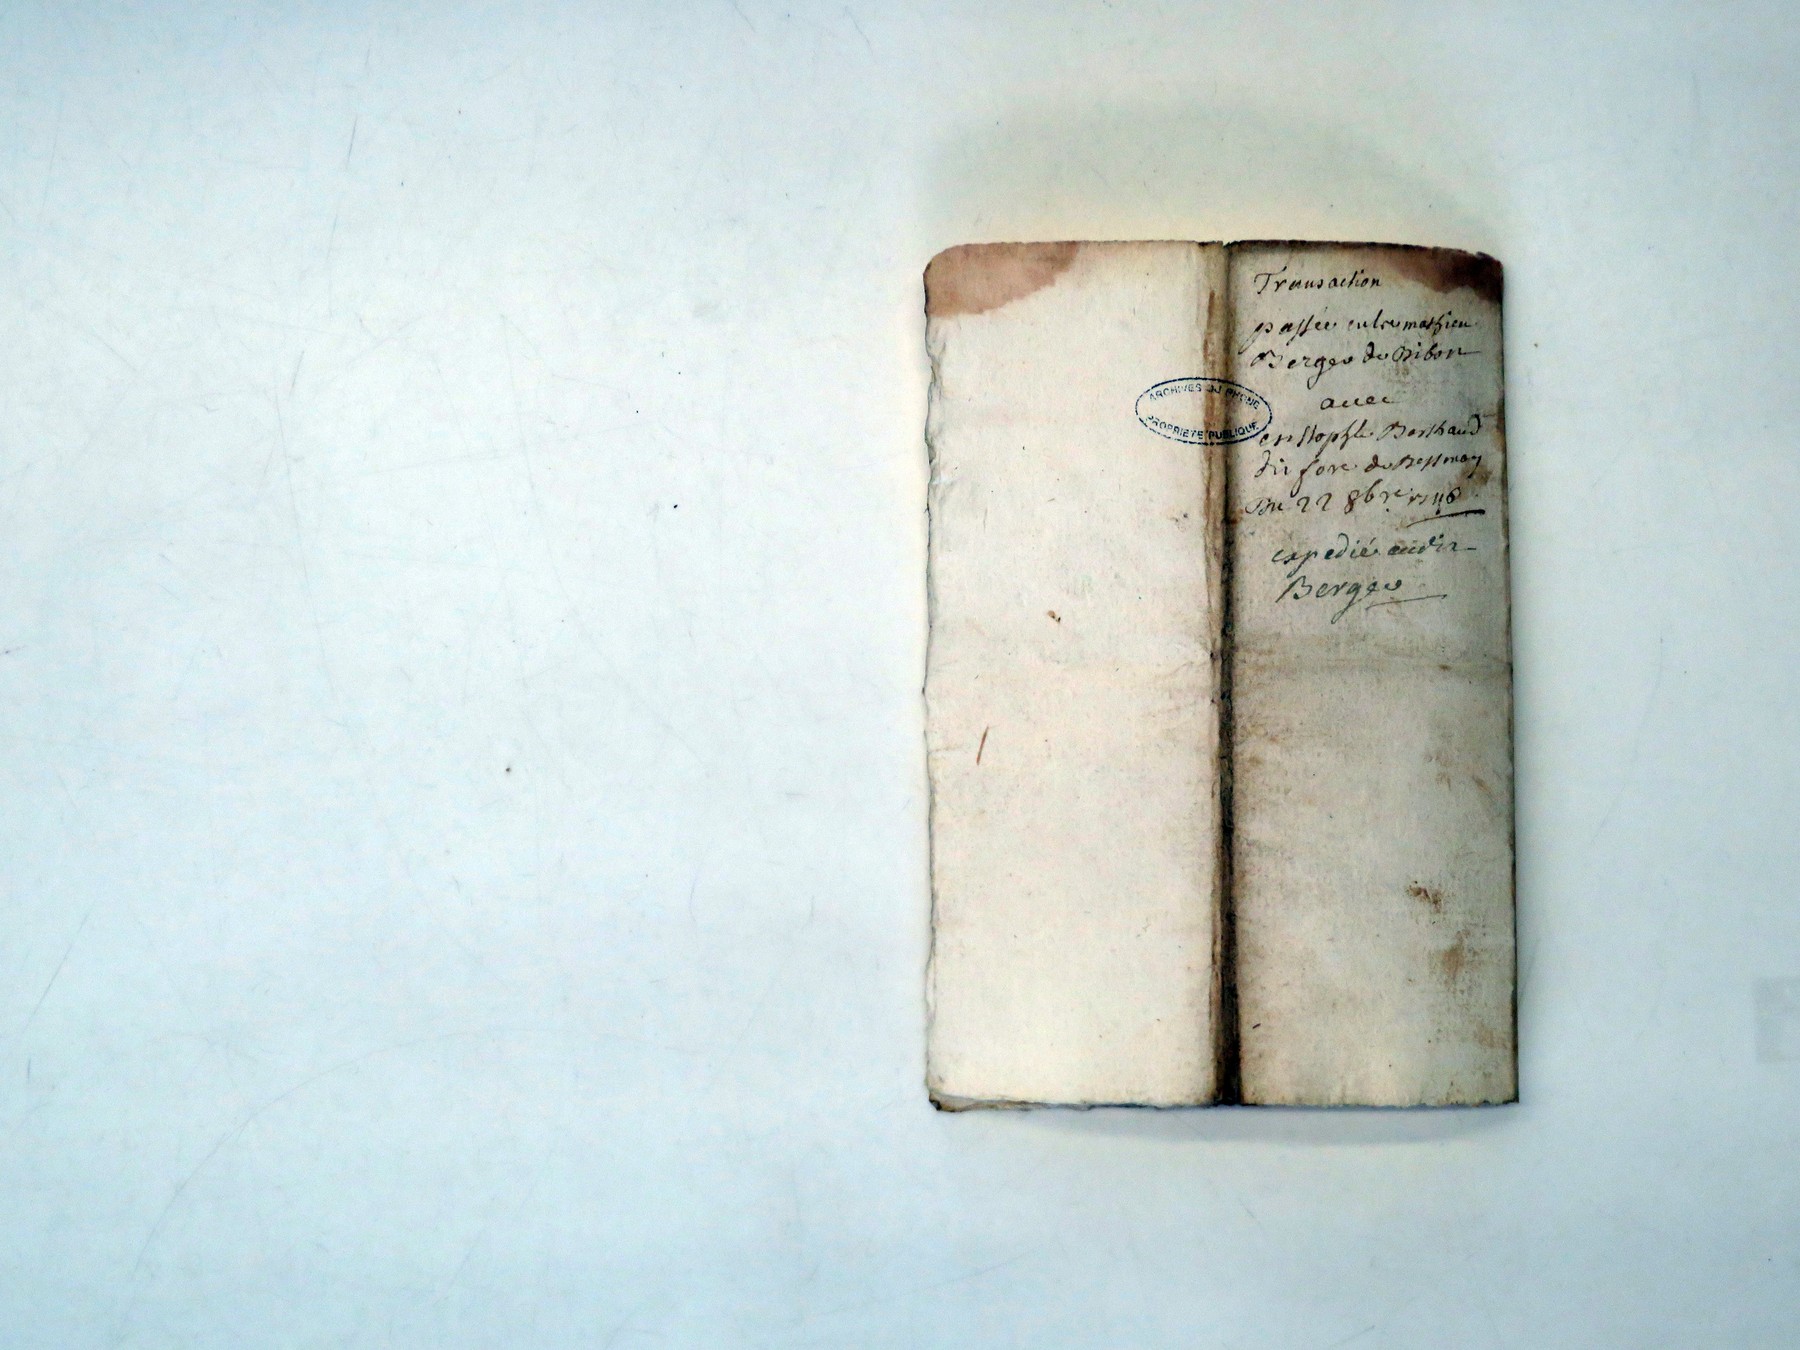 Transaction
passée entre mathieu
Berger de Ribon
auec
cristophle Berthaud
dit fore de Bessenay
Du 22 8bre
expedié audit
Berger
ARCHIVES DU RHONE
PROPRIETE PUBLIQUE